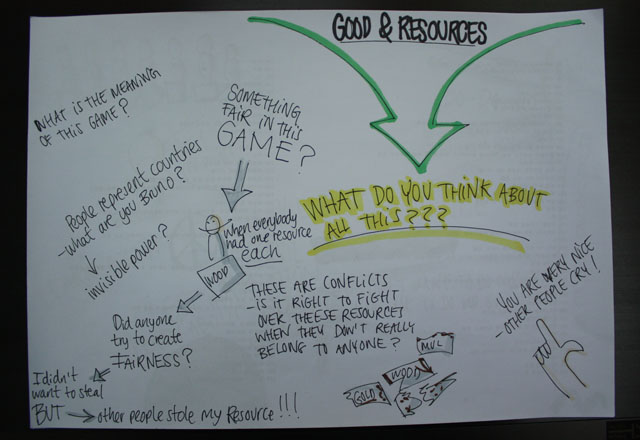 GOOD & RESOURCES
WHAT IS THE MEANING
OF THIS GAME?
SOMETHING
FAIR IN THIS
GAME?
People represent countries
- what are you Bruno?
invisible power?
when everybody
had one resource
each
WOOD
WHAT DO YOU THINK ABOUT
ALL THIS???
Did anyone
try to create
FAIRNESS?
I didn't
want to steal
BUT → other people stole my Resource!!!
THESE ARE CONFLICTS
- IS IT RIGHT TO FIGHT
OVER THEESE RESOURCES
WHEN THEY DON'T REALLY
BELONG TO ANYONE?
MUL
WOOD
GOLD
YOU ARE VERY NICE
- OTHER PEOPLE CRY!